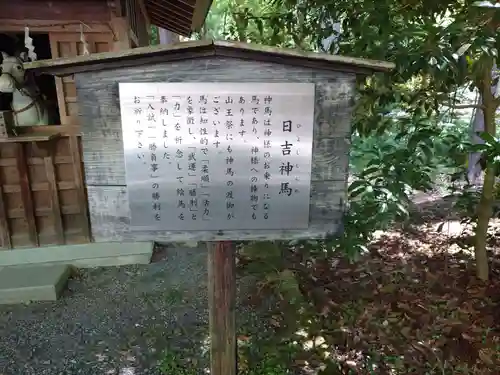 日吉神馬
神馬は神様のお乗りになる
馬であり、神様への捧物でも
あります。
山王祭にも神馬の渡御が
ございます。
馬は知性的で「柔順」「活力」
を象徴し、「武運」「勝利」
「力」を祈念して、絵馬を
奉納しました。
「入試」「勝負事」の勝利を
お祈り下さい。